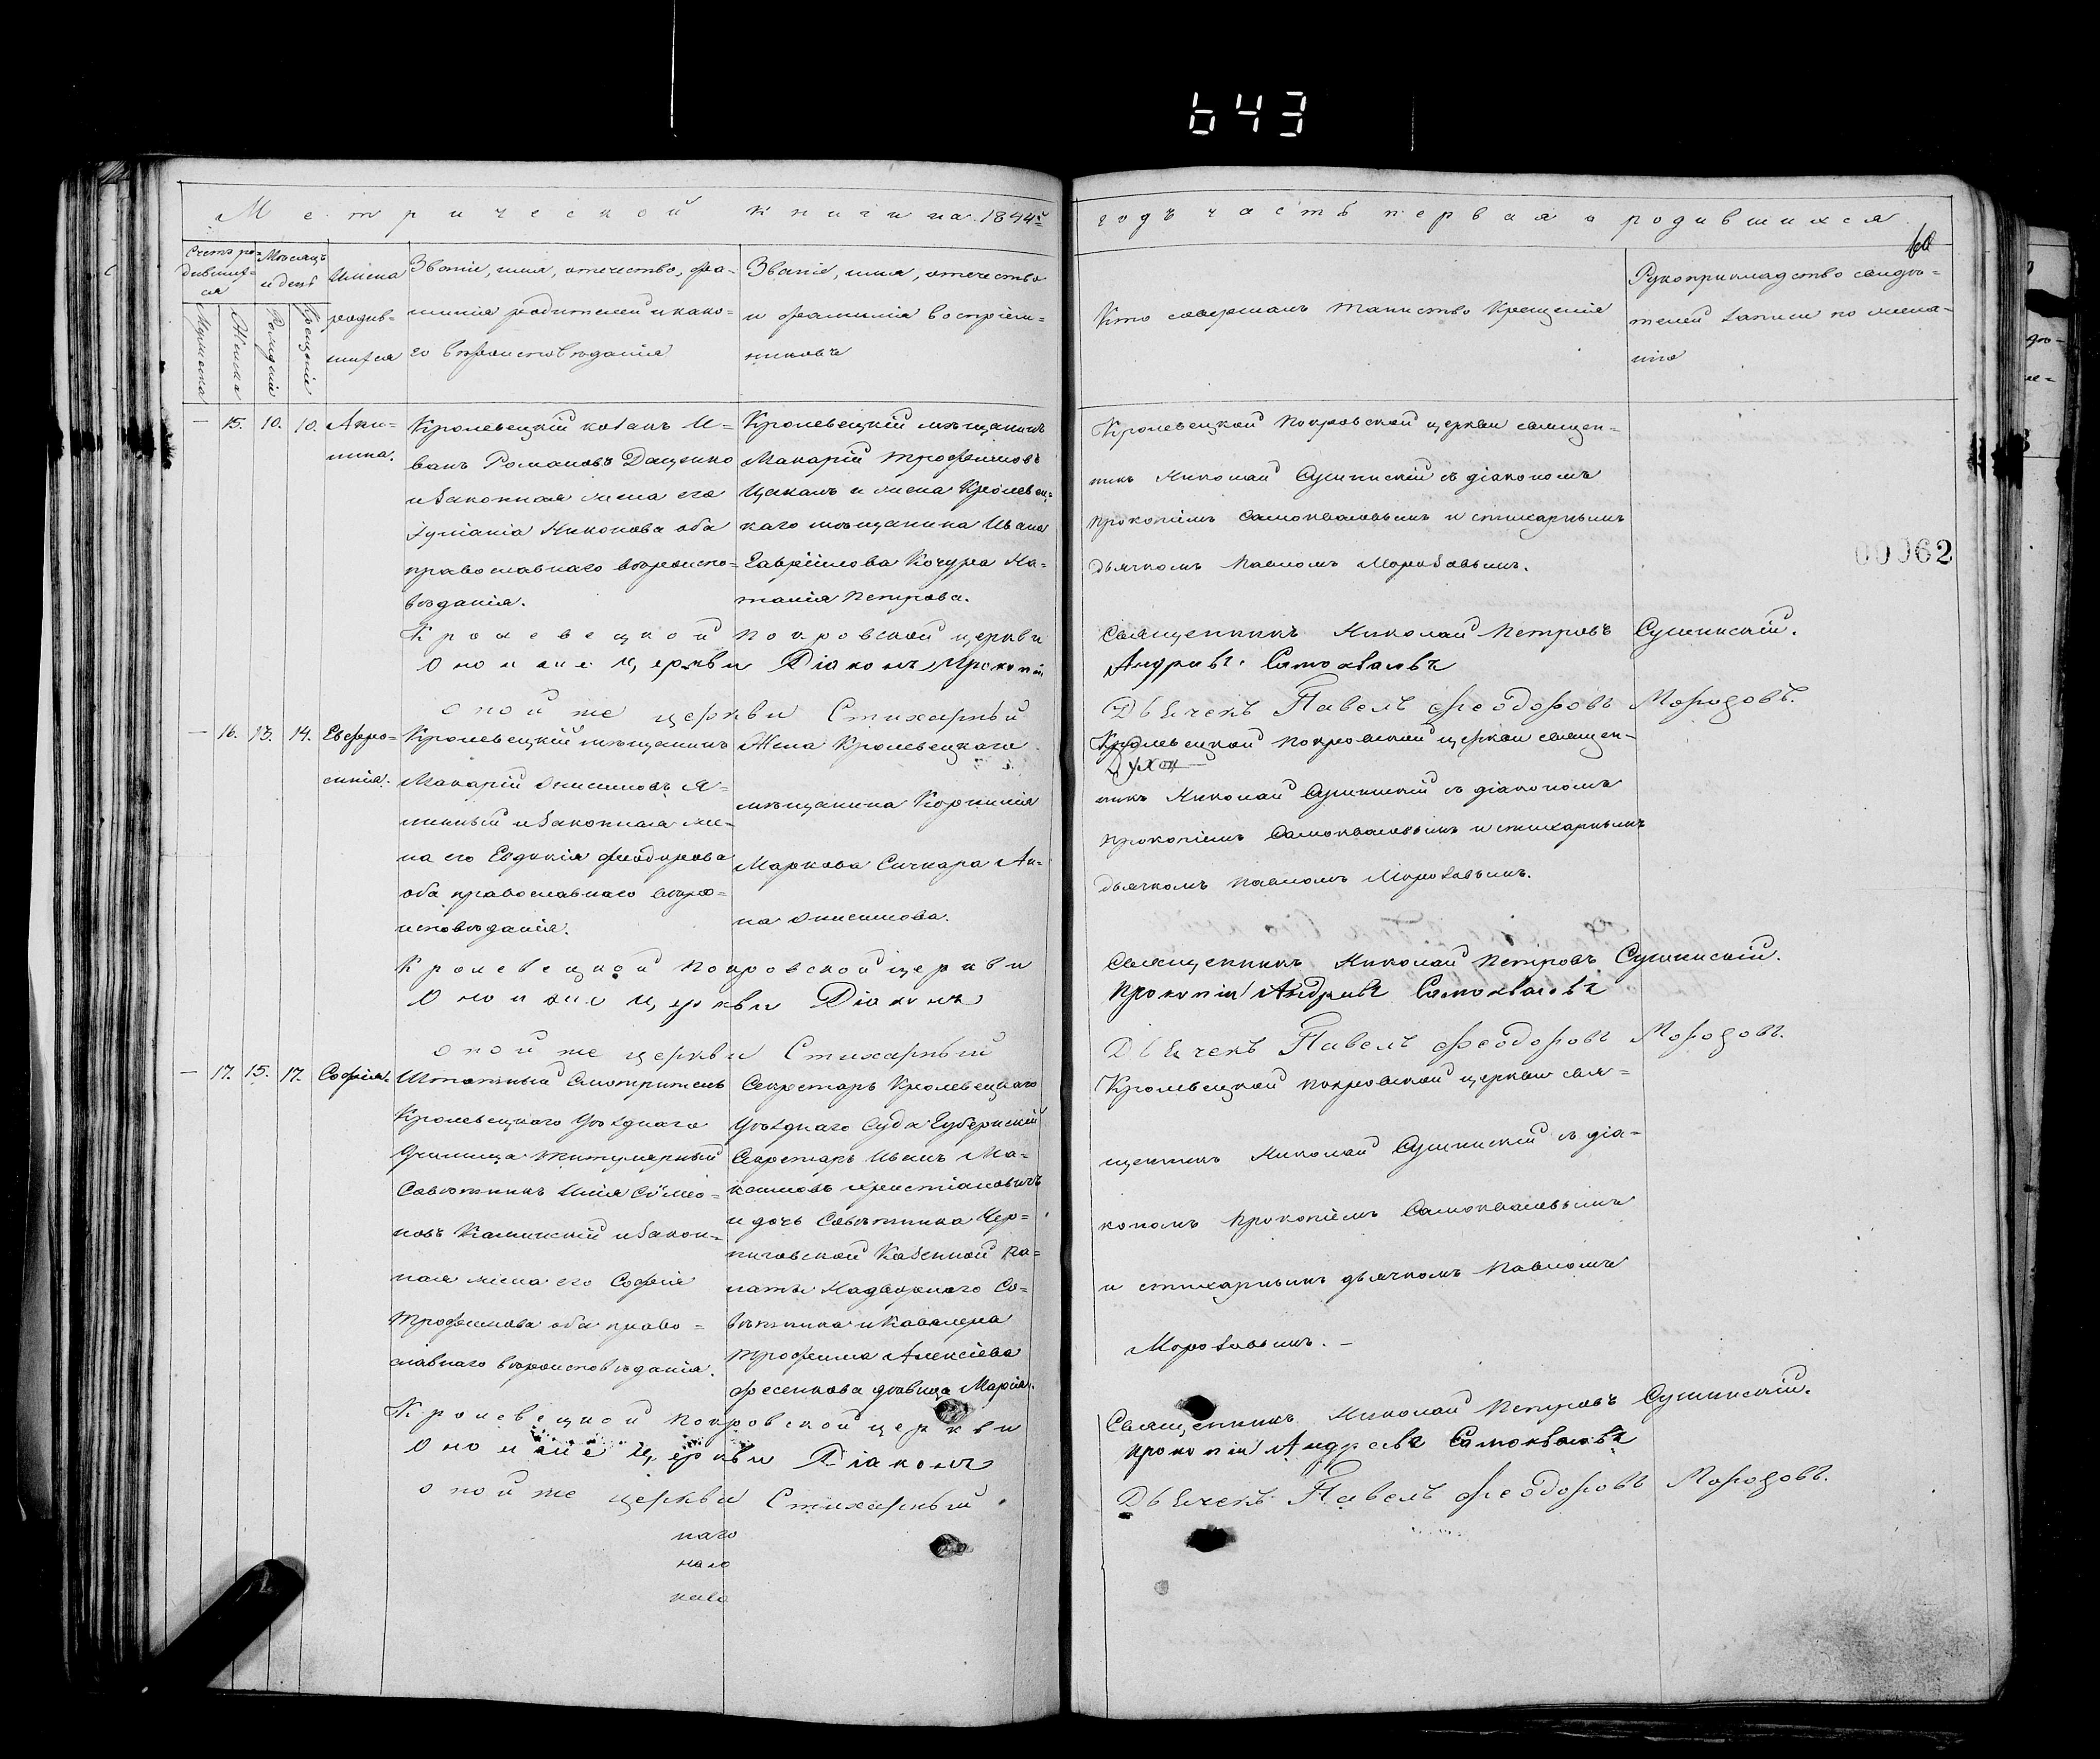 643
Метрической книги на 1844й
годъ часть первая о родившихся
60
Счетъ ро-
дивших-
ся
Мѣсяцъ
и день
Имена
родив-
шихся
Званіе, имя, отечество, фа-
милія родителей и како-
го вѣроисповѣданія
Званіе, имя, отечество
и фамилія воспріем-
никовъ
Кто совершалъ таинство Крещенія
Рукоприкладство свидѣ-
телей записи по жела-
нію
Мужеска
Женска
Рожденія
Крещенія
— 15. 10. 10.
Аки-
лина.
Кролевецкій козакъ И-
ванъ Романовъ Даценко
и законная жена его
Іуліанія Никонова оба
православнаго вѣроиспо-
вѣданія.
Кролевецкій мѣщанинъ
Макарій Трофимовъ
Цекалъ и жена Кролевец-
каго мѣщанина Ивана
Гавріилова Кочура На-
талія Петрова.
Кролевецкой Покровской церкви священ-
никъ Николай Сушинскій съ діакономъ
Прокопіемъ Самоквасовымъ и стихарнымъ
дьячкомъ Павломъ Морозовымъ.
00062
Кролевецкой Покровской церкви
Священникъ Николай Петровъ Сушинскій.
Оной же церкви Діаконъ Прокопій
Андріевъ Самоквасовъ
оной же церкви Стихарный
Дьячекъ Павелъ Феодоровъ Морозовъ.
— 16. 13. 14.
Евфро-
синія.
Кролевецкій мѣщанинъ
Макарій Онисимовъ Я-
минный и законная же-
на его Евдокія Феодорова
оба православнаго вѣро-
исповѣданія.
Жена Кролевецкаго
мѣщанина Корнилія
Маркова Сичкара Ан-
на Онисимова.
Кролевецкой Покровской церкви священ-
никъ Николай Сушинскій съ діакономъ
Прокопіемъ Самоквасовымъ и стихарнымъ
дьячкомъ Павломъ Морозовымъ.
Кролевецкой Покровской церкви
Священникъ Николай Петровъ Сушинскій.
Оной же церкви Діаконъ
Прокопій Андріевъ Самоквасовъ
оной же церкви Стихарный
Дьячекъ Павелъ Феодоровъ Морозовъ.
— 17. 15. 17.
Софія.
Штатный Смотритель
Кролевецкаго Уѣзднаго
Училища Титулярный
Совѣтникъ Илія Сѵмео-
новъ Каминскій и закон-
ная жена его Софія
Трофимова оба право-
славнаго вѣроисповѣданія.
Секретарь Кролевецкаго
Уѣзднаго Суда Губернскій
Секретарь Иванъ Ма-
каловъ Христіановичъ
и дочь Совѣтника Чер-
ниговской Казенной Па-
латы Надворнаго Со-
вѣтника и Кавалера
Трофима Алексіева
Фесенкова дѣвица Марія.
Кролевецкой Покровской церкви свя-
щенникъ Николай Сушинскій съ діа-
кономъ Прокопіемъ Самоквасовымъ
и стихарнымъ дьячкомъ Павломъ
Морозовымъ. —
Кролевецкой Покровской церкви
Священникъ Николай Петровъ Сушинскій.
Оной же церкви Діаконъ
Прокопій Андреевъ Самоквасовъ
оной же церкви Стихарный
Дьячекъ Павелъ Феодоровъ Морозовъ.
наго
наго
наго